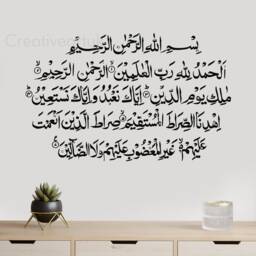 Creativeartut
بِسْمِ اللهِ الرَّحْمٰنِ الرَّحِيْمِ
اَلْحَمْدُ لِلّٰهِ رَبِّ الْعٰلَمِيْنَ ۝ الرَّحْمٰنِ الرَّحِيْمِ ۝
مٰلِكِ يَوْمِ الدِّيْنِ ۝ اِيَّاكَ نَعْبُدُ وَاِيَّاكَ نَسْتَعِيْنُ ۝
اِهْدِنَا الصِّرَاطَ الْمُسْتَقِيْمَ ۝ صِرَاطَ الَّذِيْنَ اَنْعَمْتَ
عَلَيْهِمْ ۝ غَيْرِ الْمَغْضُوْبِ عَلَيْهِمْ وَلَا الضَّآلِّيْنَ ۝